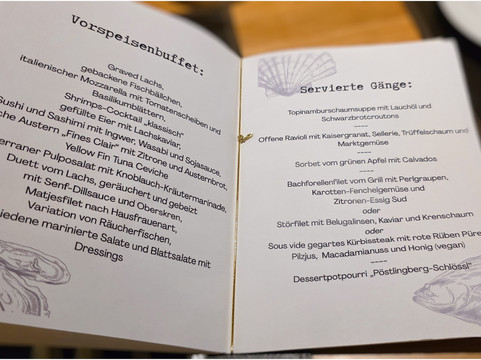 Vorspeisenbuffet:
Graved Lachs,
gebackene Fischbällchen,
italienischer Mozzarella mit Tomatenscheiben und
Basilikumblättern,
Shrimps-Cocktail „klassisch"
gefüllte Eier mit Lachskaviar,
Sushi und Sashimi mit Ingwer, Wasabi und Sojasauce,
che Austern „Fines Clair" mit Zitrone und Austernbrot,
Yellow Fin Tuna Ceviche
erraner Pulposalat mit Knoblauch-Kräutermarinade,
Duett vom Lachs, geräuchert und gebeizt
mit Senf-Dillsauce und Oberskren,
Matjesfilet nach Hausfrauenart,
Variation von Räucherfischen,
iedene marinierte Salate und Blattsalate mit
Dressings
Servierte Gänge:
Topinamburschaumsuppe mit Lauchöl und
Schwarzbrotcroutons
----
Offene Ravioli mit Kaisergranat, Sellerie, Trüffelschaum und
Marktgemüse
----
Sorbet vom grünen Apfel mit Calvados
----
Bachforellenfilet vom Grill mit Perlgraupen,
Karotten-Fenchelgemüse und
Zitronen-Essig Sud
oder
Störfilet mit Belugalinsen, Kaviar und Krenschaum
oder
Sous vide gegartes Kürbissteak mit rote Rüben Püre
Pilzjus, Macadamianuss und Honig (vegan)
----
Dessertpotpourri „Pöstlingberg-Schlössl"